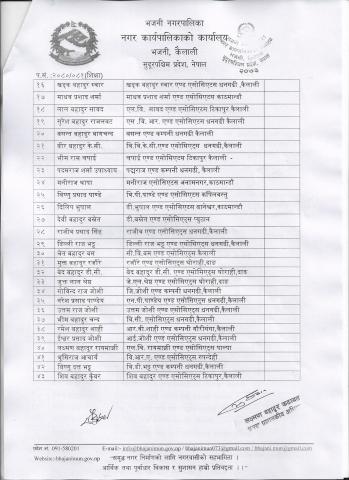 भजनी नगरपालिका
नगर कार्यपालिकाको कार्यालय
भजनी, कैलाली
सुदूरपश्चिम प्रदेश, नेपाल
२०७३
प.सं. :२०८०/०८१(शिक्षा)
१६ खडक बहादुर स्वार खडक एण्ड एसोसिएटस धनगढी, कैलाली
१७ माधव प्रसाद शर्मा माधव प्रसाद शर्मा एण्ड एसोसिएटस काठमाण्डौ
१८ लाल बहादुर सावद एल.वि. सावद एण्ड एसोसिएटस टिकापुर कैलाली
१९ सुरेश बहादुर राजलवट एस .वि. आर. एण्ड एसोसिएटस धनगढी,कैलाली
२० बसन्त बहादुर बामचन्द बसन्त एण्ड कम्पनी धनगढी, कैलाली
२१ वीर बहादुर के.सी. वि.वि.के.सी.एण्ड एसोसिएटस धनगढी, कैलाली
२२ भीम राम चपाई चपाई एण्ड एसोसिएटस टिकापुर कैलाली -
२३ पदमराज शर्मा उपाध्याय पद्मराज एण्ड कम्पनी धनगढी, कैलाली
२४ मनीराज थापा मनीराज एसोसिएटस अनामनगर,काठमाण्डौ
२५ विष्णु प्रसाद पाण्डे वि.पी.पाण्डे एण्ड एसोसिएटस कपिलवस्तु
२६ दिलिप भुषाल डि.भुषाल एण्ड एसोसिएटस बानेश्वर,काठमाण्डौ
२७ देवी बहादुर बस्नेत डि.बस्नेत एण्ड एसोसिएटस प्युठान
२८ राजीव प्रसाद सिंह राजीव एण्ड एसोसिएटस धनगढी,कैलाली
२९ डिल्ली राज भट्ट डिल्ली राज भट्ट एण्ड एसोसिएटस धनगढी,कैलाली
३० चेत बहादुर बम सी.वि.बम एण्ड एसोसिएटस कैलाली
३१ मुक्त बहादुर रजौरे रजौरे एण्ड एसोसिएटस घोराही,दाङ
३२ वेद बहादुर डी.सी. वेद बहादुर डी.सी. एण्ड एसोसिएटस घोराही,दाङ
३३ जुक्त लाल श्रेष्ठ जे.एल.श्रेष्ठ एण्ड एसोसिएटस काठमाण्डौ
३४ गोविन्द राज जोशी जि.जोशी एण्ड कम्पनी धनगढी, कैलाली
३५ नरेश प्रसाद पाण्डेय एन.पी.पाण्डेय एण्ड एसोसिएटस धनगढी,कैलाली
३६ उत्तम राज जोशी उत्तम जोशी एण्ड कम्पनी धनगढी, कैलाली
३७ भीम बहादुर चन्द वि.सी. एसोसिएटस धनगढी,कैलाली
३८ रमेश बहादुर शाही आर.वी.शाही एण्ड कम्पनी गौरीगंगा,कैलाली
३९ ईश्वर प्रसाद जोशी आई.जोशी एण्ड एसोसिएटस धनगढी,कैलाली
४० लक्ष्मण बहादुर रायमाझी एल.वि. रायमाझी एण्ड एसोसिएटस पाल्पा
४१ भुमिराज आचार्य वि.आर.ए. एण्ड एसोसिएटस रुपन्देही
४२ विष्णु दत्त भट्ट वि.डी.भट्ट एण्ड एसोसिएटस कैलाली
४३ शिव बहादुर कुँवर शिव बहादुर एण्ड एसोसिएटस टिकापुर,कैलाली
लक्ष्मण बहादुर कठायत
प्रमुख प्रशासकीय अधिकृत
फोन नं. 091-580201 E-mail:- info@bhajanimun.gov.np
Website:-bhajanimun.gov.np
"समृद्ध नगर निर्माणको लागि नगरवासीको सहभागिता ।
आर्थिक तथा पूर्वाधार विकास र सुशासन हाम्रो प्रतिबद्धता ।।"